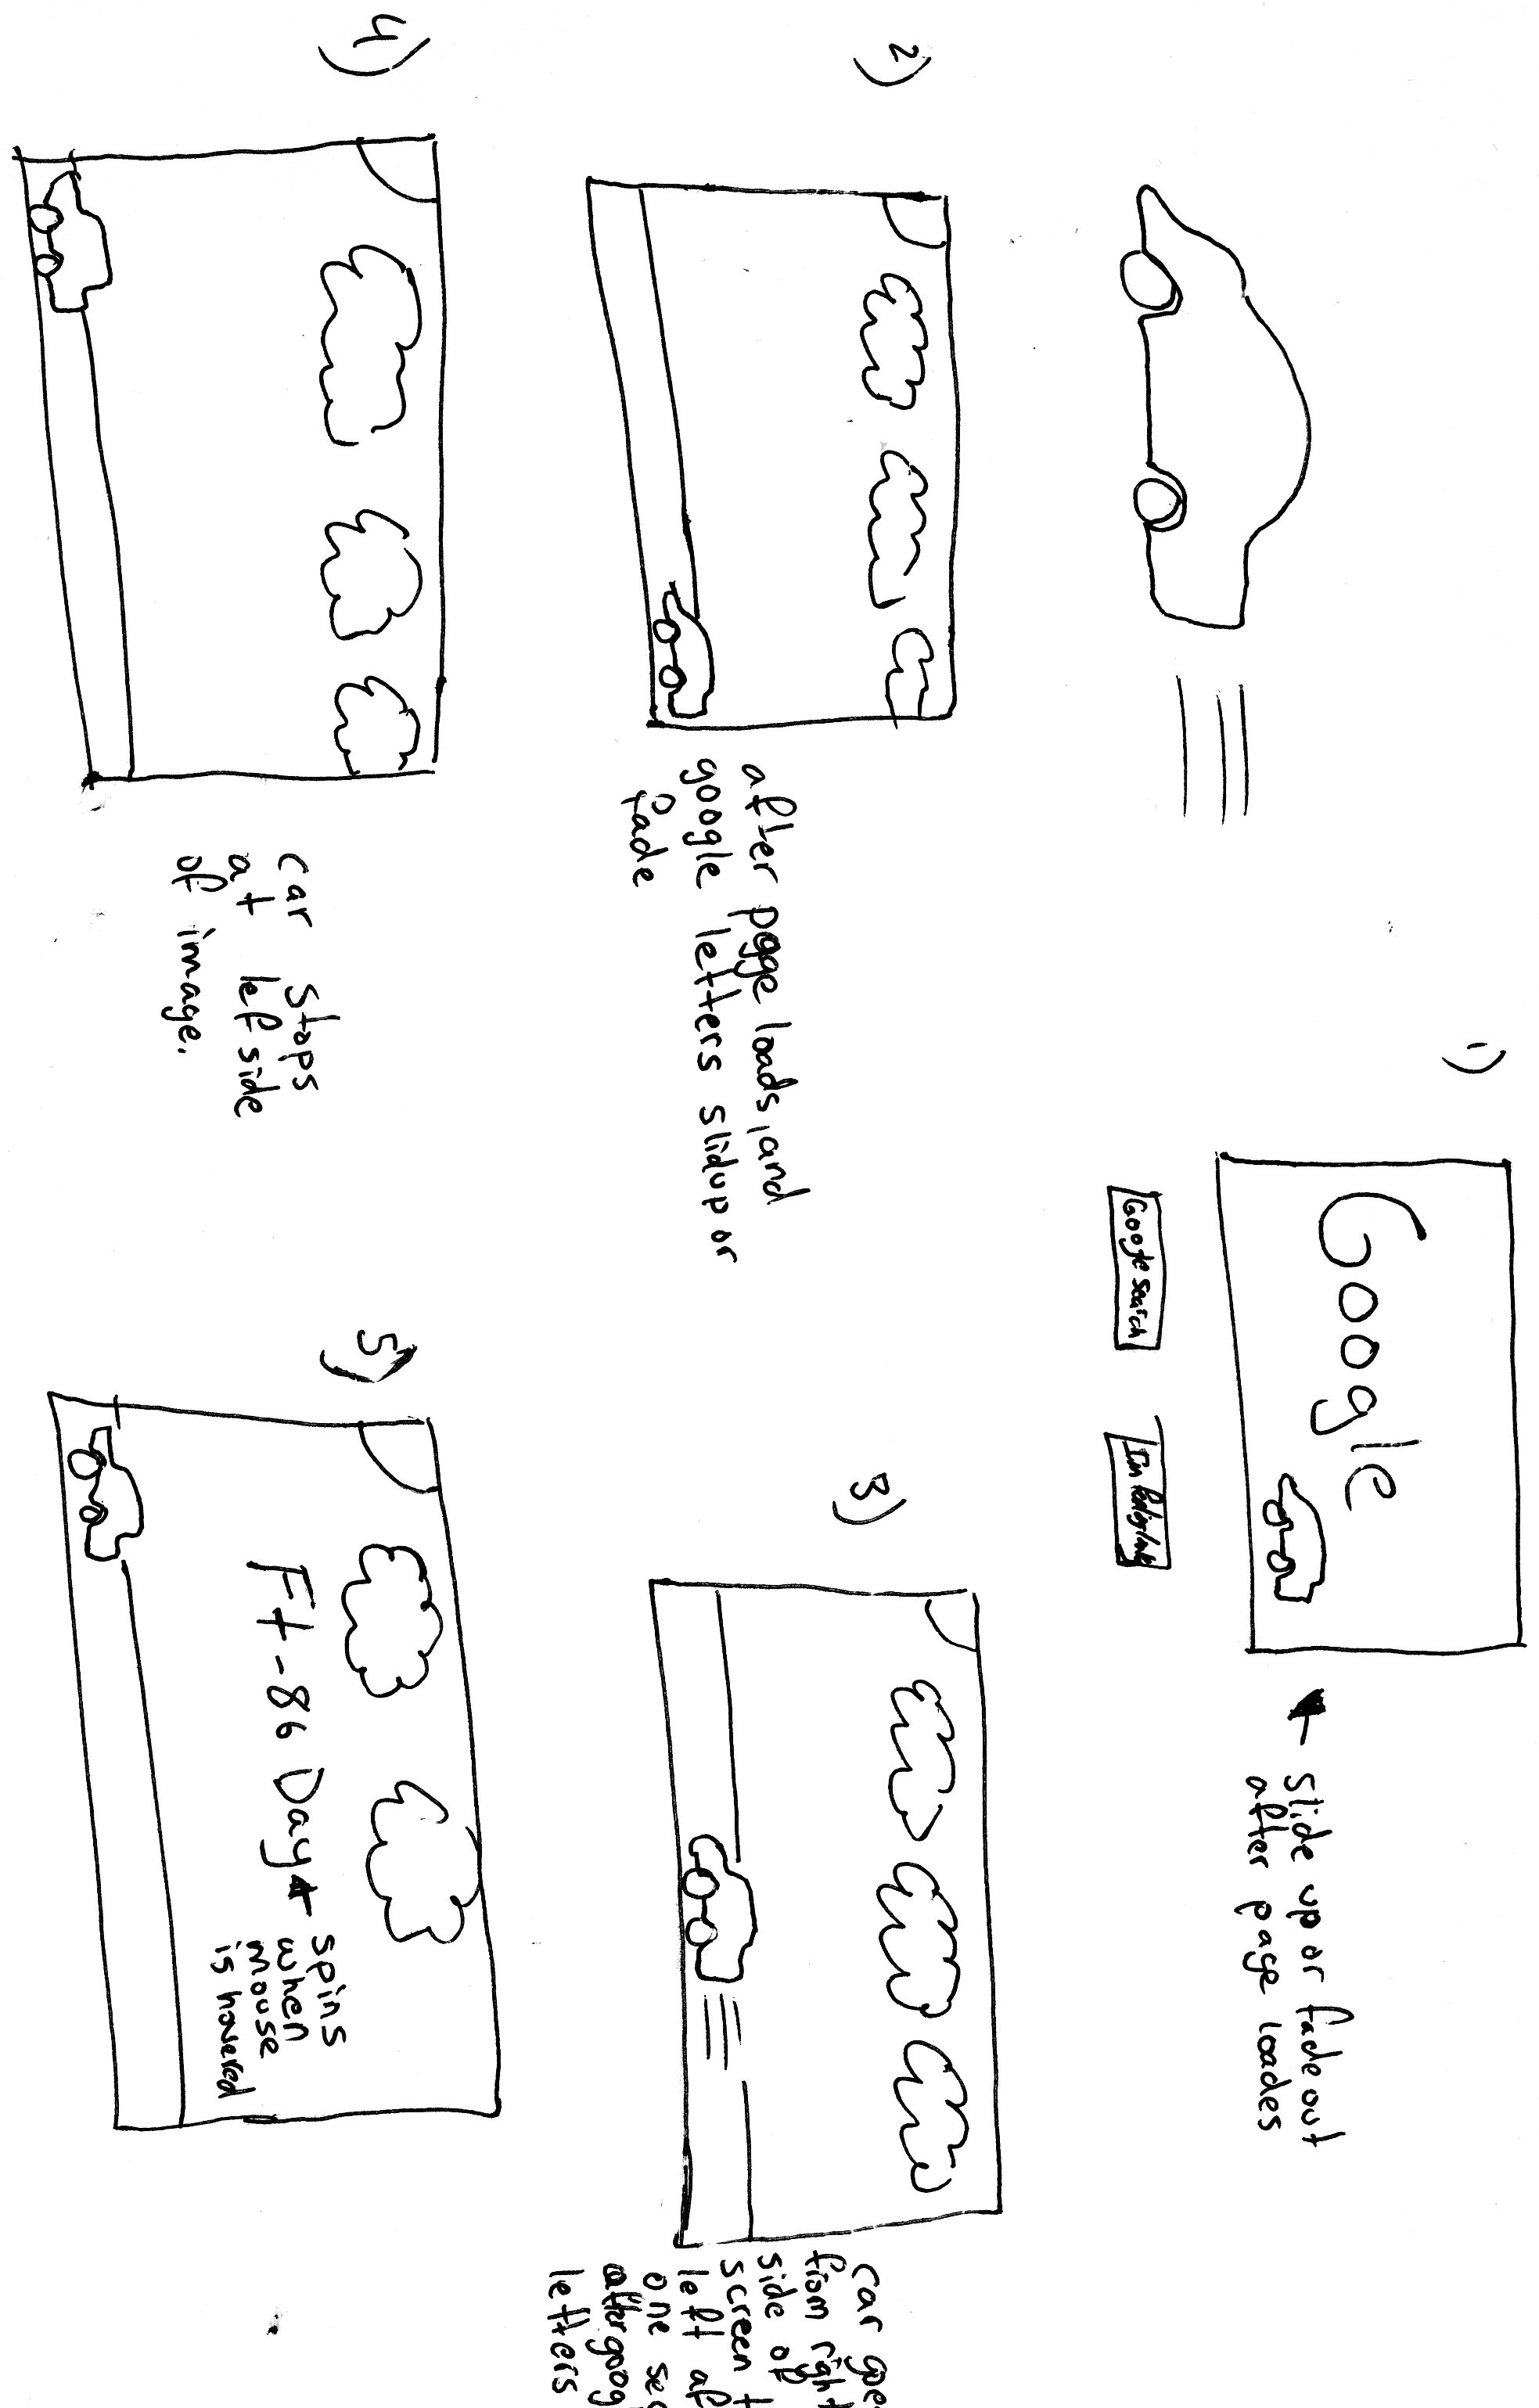 1)
Google
Google search
← slide up or fade out
after page loades
2)
after page loads, and
google letters slidup or
fade
3)
car goe
from right
side of
screen t
left af
one sec
after goog
letters
4)
car stops
at lef side
of image.
5)
Ft-86 Day ← spins
when
mouse
is hovered